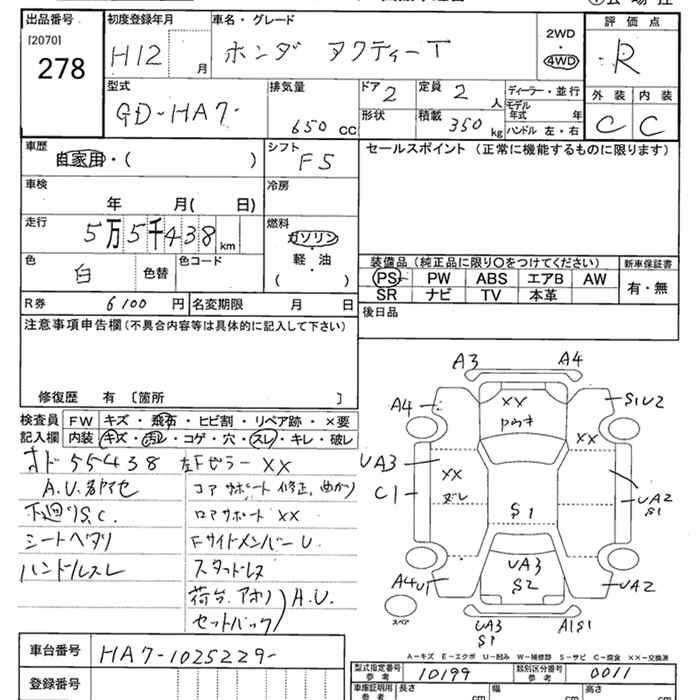 出品番号
[2070]
278
初度登録年月
H12 月
車名・グレード
ホンダ アクティーT
2WD
・
4WD
評価点
R
型式
GD-HA7-
排気量
650 cc
ドア 2
定員 2 人
形状
積載 350 kg
ディーラー・並行
モデル年式 年
ハンドル 左・右
外装 内装
C C
車歴
自家用・( )
シフト
F5
セールスポイント (正常に機能するものに限ります)
車検
年 月( 日)
冷房
走行
5万5千438 km
燃料
ガソリン
軽・油
( )
色
白
色替
色コード
装備品 (純正品に限り○をつけてください)
新車保証書
PS PW ABS エアB AW
SR ナビ TV 本革
有・無
R券 6100 円
名変期限 月 日
後日品
注意事項申告欄 (不具合内容等は具体的に記入して下さい)
修復歴 有 〔箇所 〕
検査員
記入欄
FW キズ・飛石・ヒビ割・リペア跡・×要
内装 キズ・汚レ・コゲ・穴・スレ・キレ・破レ
オド 55438 左Fピラー XX
A.U.名ヤセ
コアサポート修正、曲がり
下廻りS.C.
ロアサポート XX
シートヘタリ
Fサイドメンバー U.
ハンドルスレ
スタッドレス
荷台、アオリ A.U.
セットバック
A3 A4
A4
S1U2
XX
UA3
C1
XX
XX
S1
UA2
S1
UA3
S2
A4U1
UA2
スペア
UA3
S1
A1S1
A-キズ E-エクボ U-凹み W-補修跡 S-サビ C-腐食 XX-交換済
車台番号
HA7-1025229-
登録番号
型式指定番号 参考 10199
類別区分番号 参考 0011
車庫証明用 参考
長さ cm
幅 cm
高さ cm